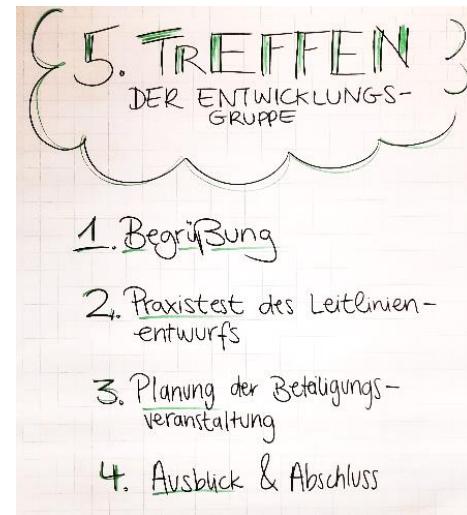 5. TREFFEN
DER ENTWICKLUNGS-
GRUPPE
1. Begrüßung
2. Praxistest des Leitlinien-
entwurfs
3. Planung der Beteiligungs-
veranstaltung
4. Ausblick & Abschluss